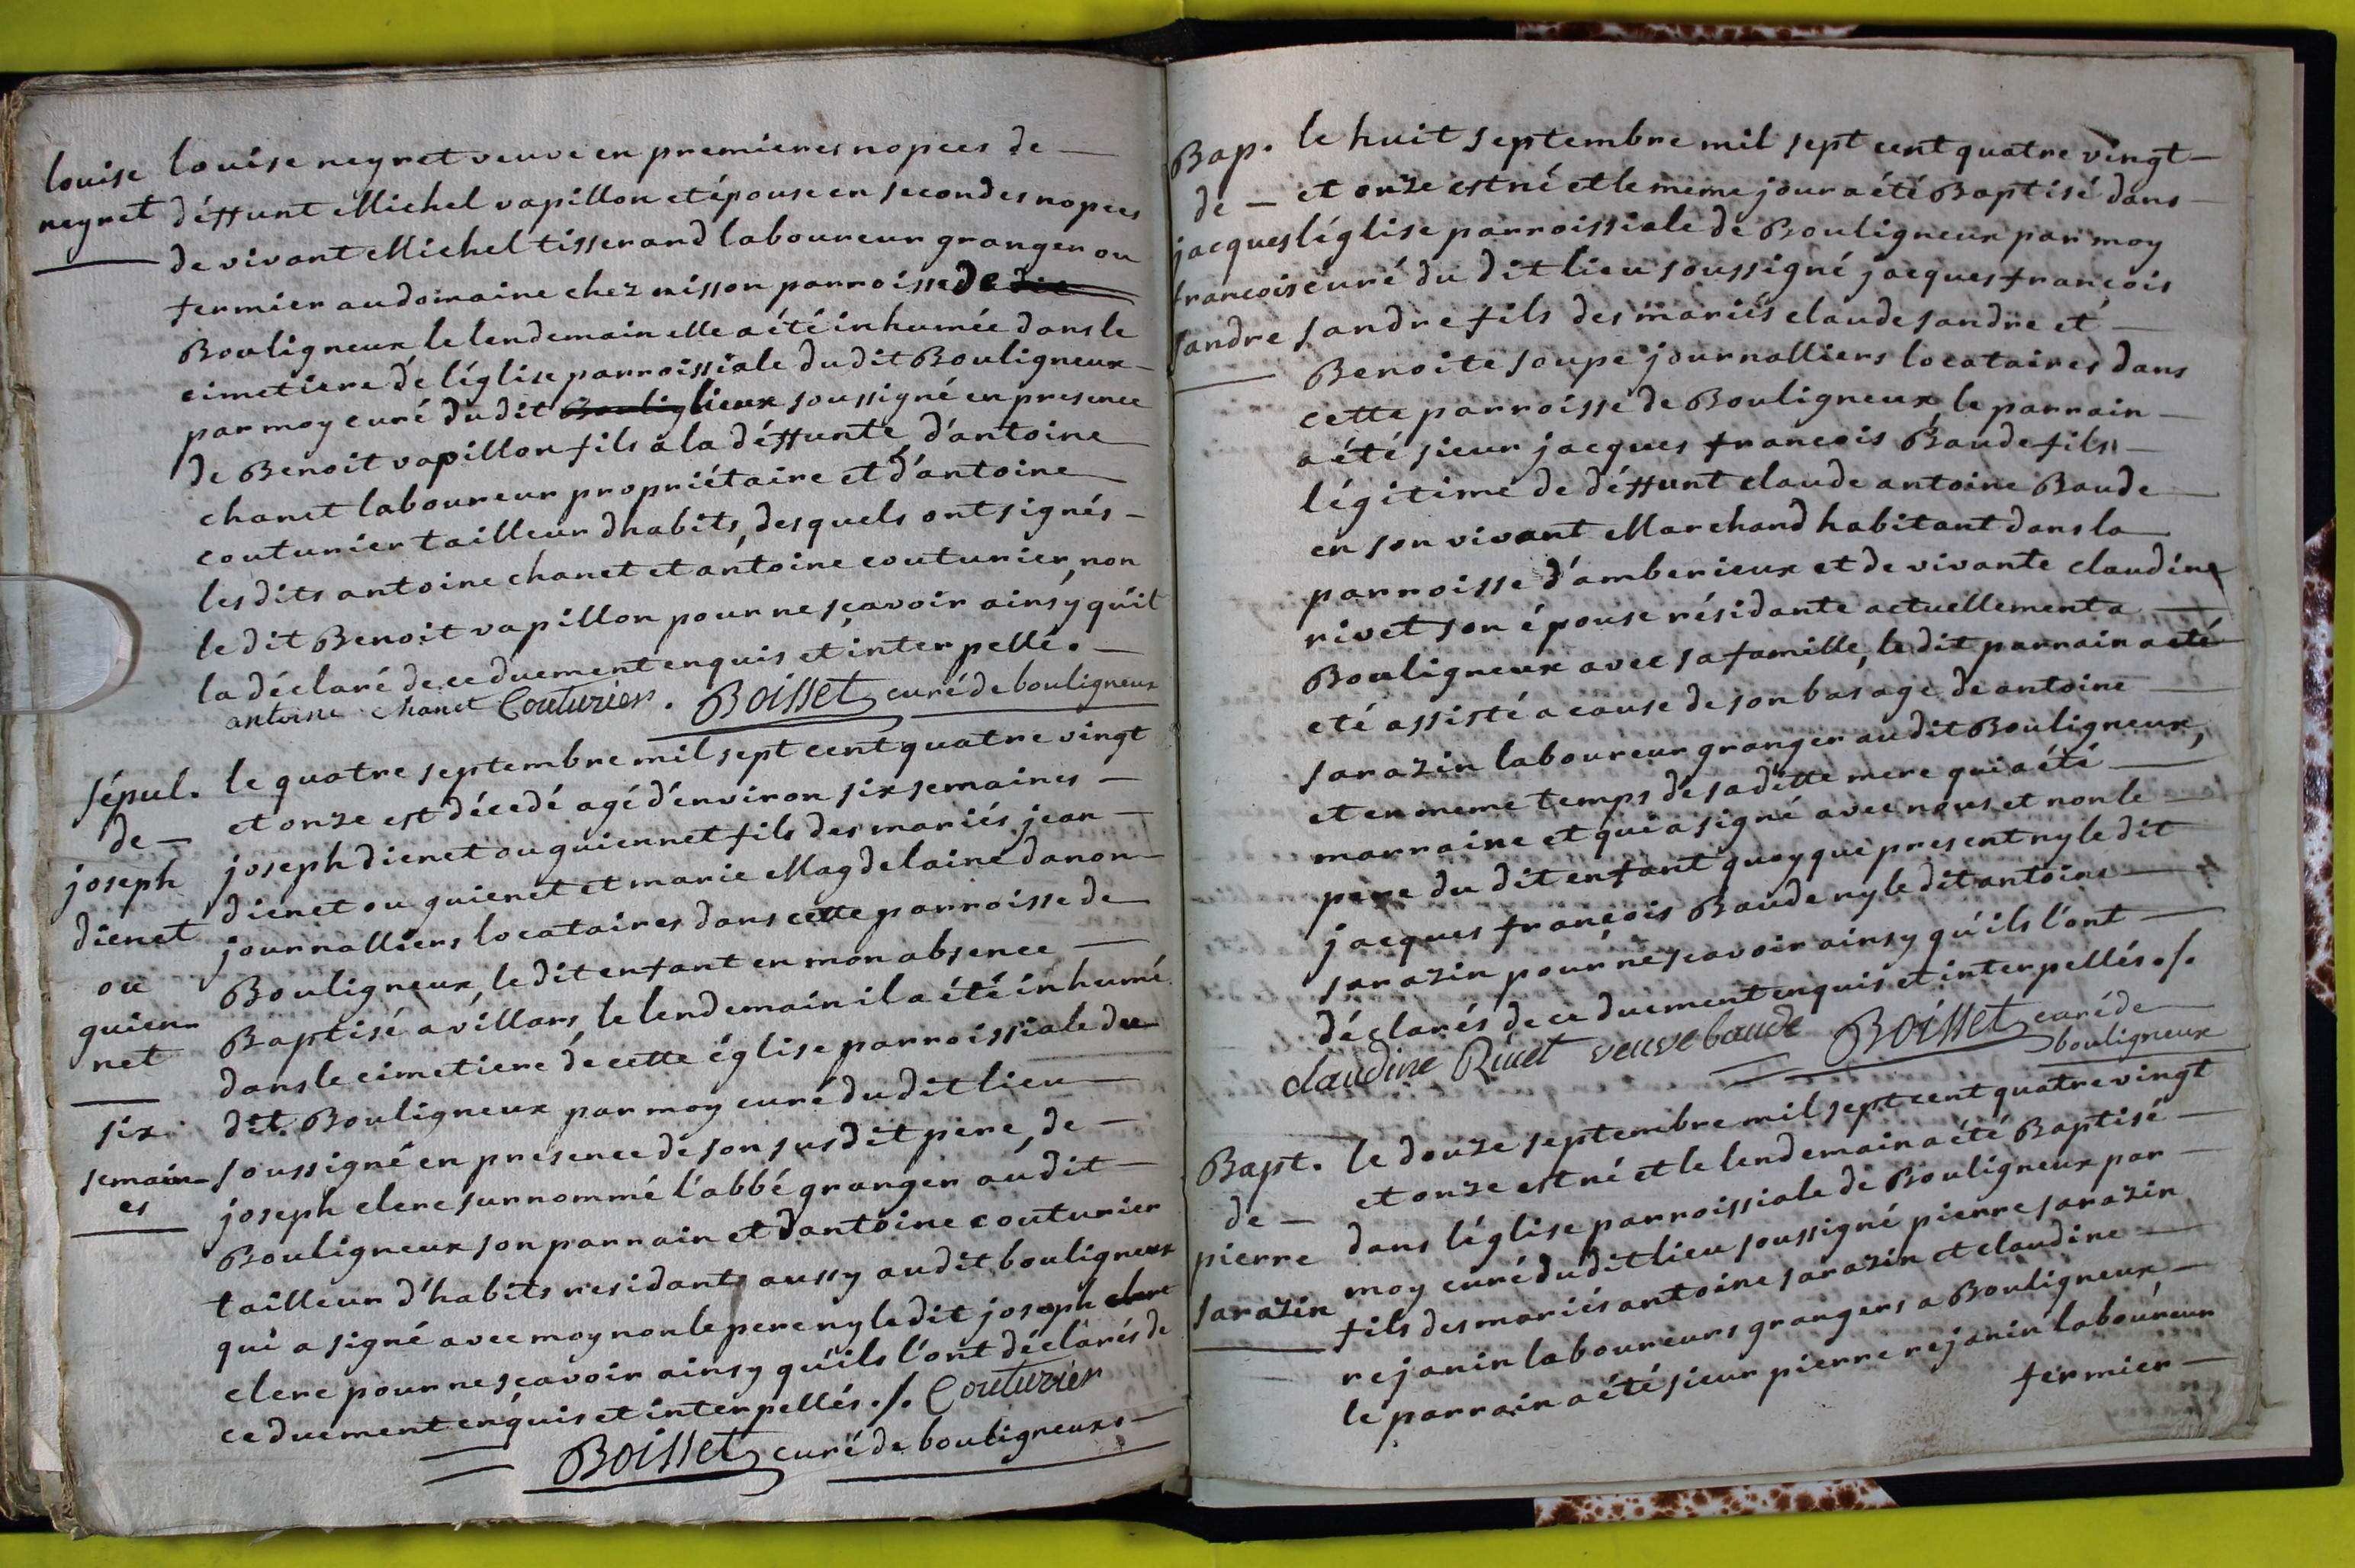 louise
neyret
louise neyret veuve en premieres nopces de —
déffunt Michel vapillon et épouse en secondes nopces
de vivant Michel tisserand laboureur granger ou
fermier au domaine chez nisson parroisse de
Bouligneux le lendemain elle a été inhumée dans le
cimetiere de léglise parroissiale du dit Bouligneux —
par moy curé du dit lieux soussigné en presence
de Benoit vapillon fils a la déffunte, d'antoine
chanet laboureur propriétaire et d'antoine
couturier tailleur dhabits, desquels ont signés —
les dits antoine chanet et antoine couturier, non
le dit Benoit vapillon pour ne sçavoir ainsy qu'il
la déclaré de ce duement enquis et interpellé. —
antoine chanet Couturier. Boisset curé de bouligneux
sépul.
de —
joseph
dienet
ou
guien-
net
six
semain-
es
le quatre septembre mil sept cent quatre vingt
et onze est décedé agé d'environ six semaines —
joseph dienet ou guiennet fils des mariés jean —
dienet ou guienet et marie Magdelaine danon —
journalliers locataires dans cette parroisse de
Bouligneux, le dit enfant en mon absence —
Baptisé a villars, le lendemain il a été inhumé
dans le cimetiere de cette église parroissiale du
dit. Bouligneux par moy curé du dit lieu —
soussigné en presence de son susdit pere, de —
joseph clerc surnommé l'abbé granger au dit —
Bouligneux son parrain et d'antoine couturier
tailleur d'habits residants aussy au dit bouligneux
qui a signé avec moy non le pere ny le dit joseph clerc
clerc pour ne sçavoir ainsy qu'ils l'ont déclarés de
ce duement enquis et interpellés ./. Couturier
Boisset curé de bouligneux. —
Bap.
de —
jacques
francois
sandre
le huit septembre mil sept cent quatre vingt —
et onze est né et le meme jour a été Baptisé dans —
léglise parroissiale de Bouligneux par moy
curé du dit lieu soussigné jacques françois
sandre fils des mariés claude sandre et —
Benoite soupe journalliers locataires dans
cette parroisse de Bouligneux, le parrain —
a été sieur jacques francois Baude fils —
légitime de déffunt claude antoine Baude —
en son vivant Marchand habitant dans la —
parroisse d'amberieux et de vivante claudine
rivet son épouse résidante actuellement a —
Bouligneux avec sa famille, le dit parrain a été
eté assisté a cause de son bas age de antoine —
sarazin laboureur granger au dit Bouligneux,
et en meme temps de sa ditte mere qui a été —
marraine et qui a signé avec nous et non le —
pere du dit enfant quoyque present ny le dit
jacques françois Baude ny le dit antoine —
sarazin pour ne scavoir ainsy qu'ils l'ont —
déclarés de ce duement enquis et interpellés ./.
claudine Rivet veuve baude Boisset curé de
bouligneux
Bapt.
de —
pierre
sarazin
le douze septembre mil sept cent quatre vingt
et onze est né et le lendemain a été Baptisé —
dans léglise parroissiale de Bouligneux par —
moy curé du dit lieu soussigné pierre sarazin
fils des mariés antoine sarazin et claudine —
rejanin laboureurs grangers a Bouligneux —
le parrain a été sieur pierre rejanin laboureur
fermier —